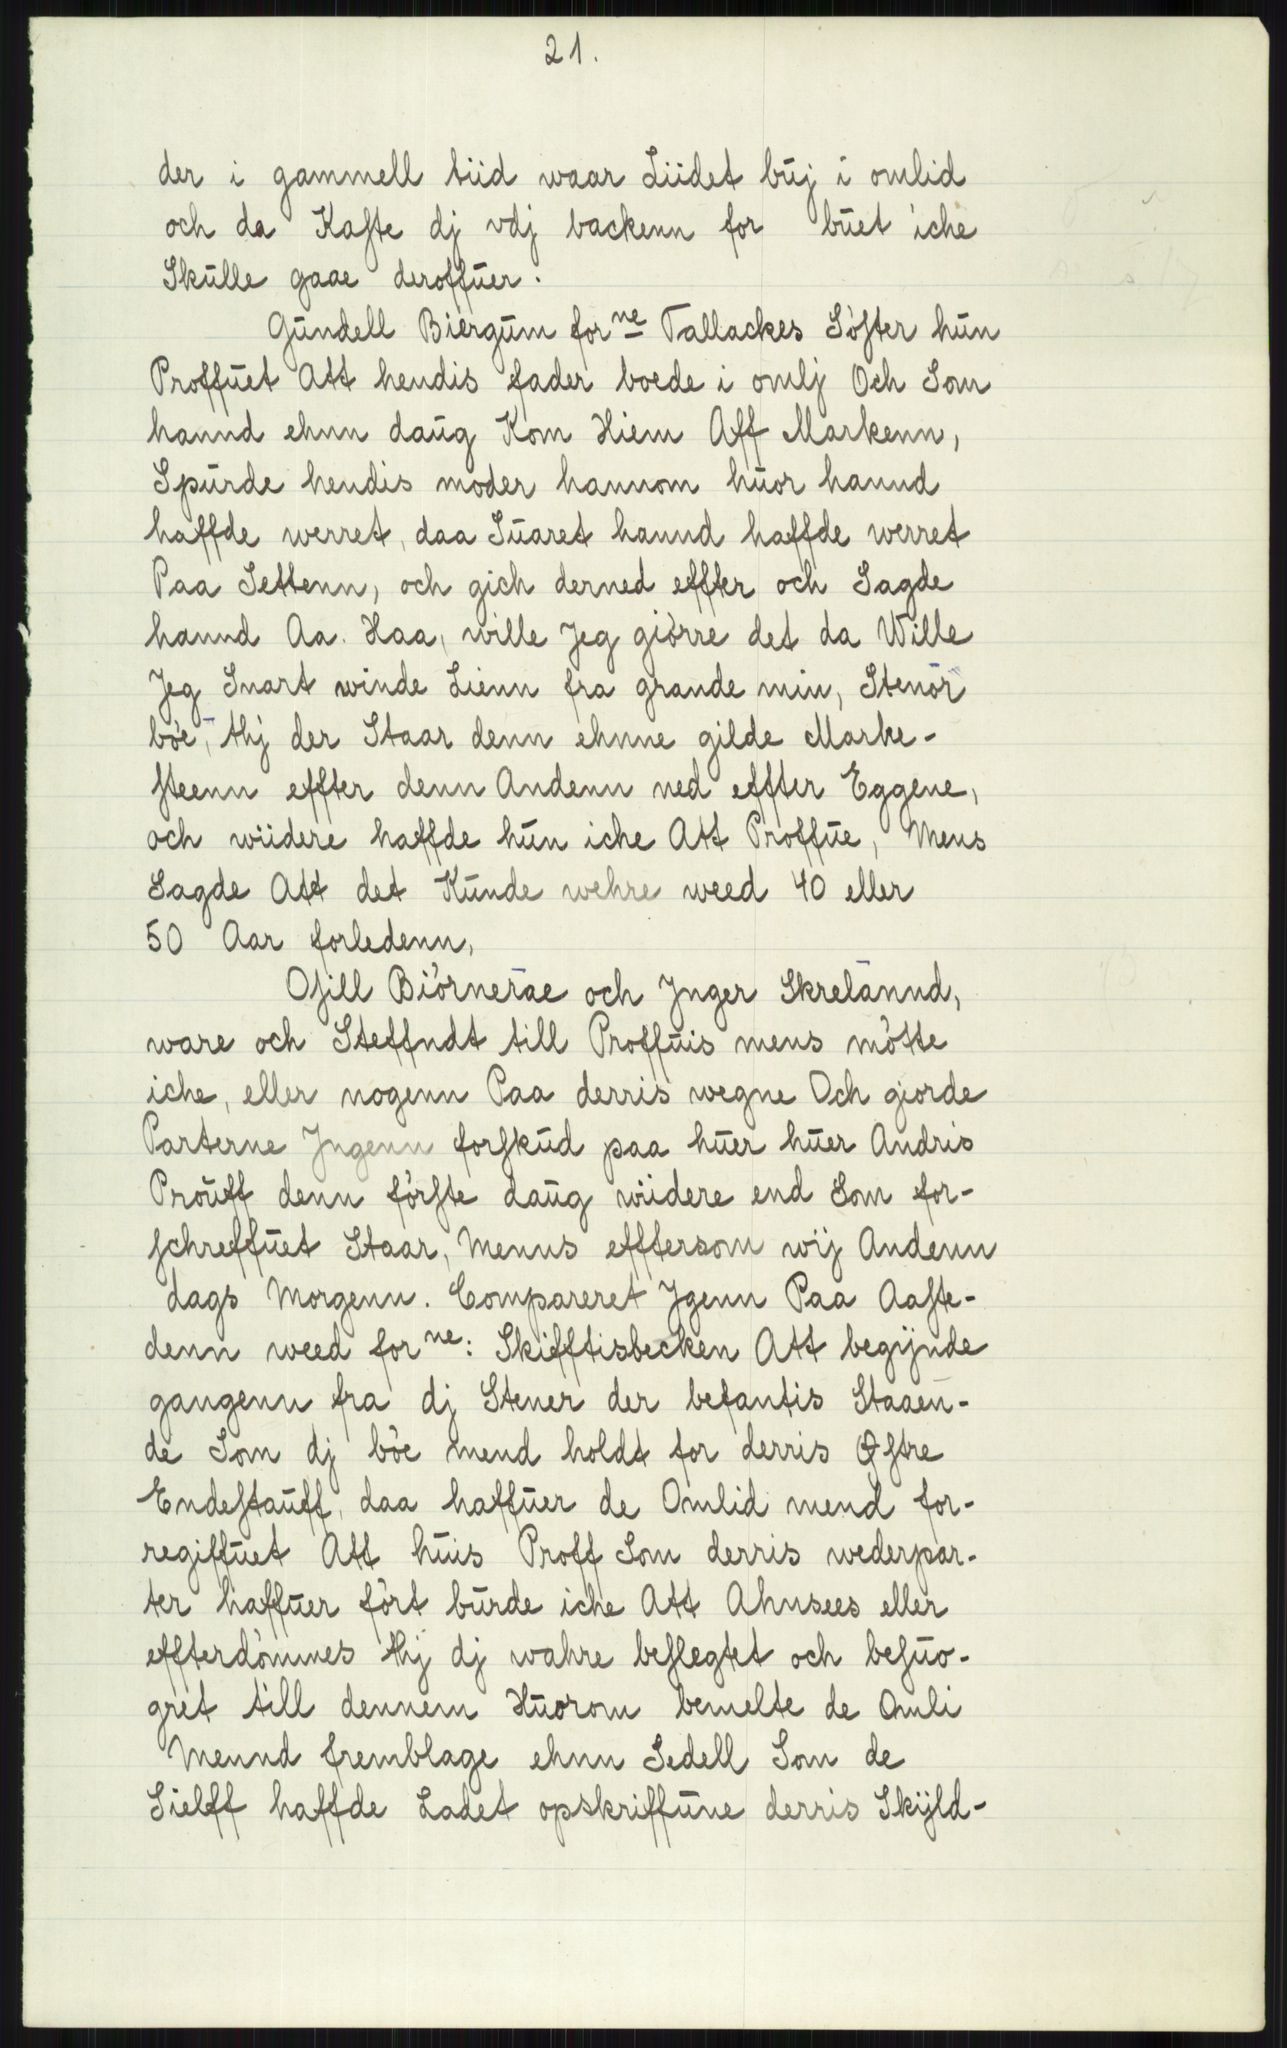 21.
der i gammell tiid waar Liidet buj i omlid
och da Kaste dj vdj backenn for buet iche
Skulle gaae deroffuer.
Gundell Biergum for ne Tallackes Söster hun
Proffuet Att hendis fader boede i omlj Och Som
hannd ehnn daug Kom Hiem Aff Markenn,
Spurde hendis moder hannom huor hannd
haffde werret, daa Suaret hannd haffde werret
Paa Settenn, och gich derned effter och Sagde
hannd Aa. Haa, wille Jeg giörre det da Wille
Jeg Snart winde Lienn fra grande min, Stenör
böe, thj der Staar denn ehnne gilde Marke-
steenn effter denn Andenn ned effter Eggene,
och wiidere haffde hun iche Att Proffue, Mens
Sagde Att det Kunde wehre weed 40 eller
50 Aar forledenn,
Osill Biörneraae och Jnger Skrelannd,
ware och Steffndt till Proffuis mens mötte
iche, eller nogenn Paa derris wegne Och giorde
Parterne Jngenn forskud paa huer huer Andris
Prouff denn förste daug wiidere end Som for-
schreffuet Staar, Menns efftersom wij Andenn
dags Morgenn. Compareret Jgenn Paa Aaste-
denn weed for ne: Skifftisbecken Att begynde
gangenn fra dj Stener der befantis Staaen-
de Som dj böe mend holdt for derris Østre
Endestauff, daa haffuer de Omlid mend for-
regiffuet Att huis Proff Som derris wederpar-
ter haffuer fört burde iche Att Ahnsees eller
effterdömmes thj dj wahre beslegtet och besuo-
gret till dennem Huorom bemelte de Omli
Mennd fremblage ehnn Sedell Som de
Sielff haffde Ladet opskriffune derris Skyld-